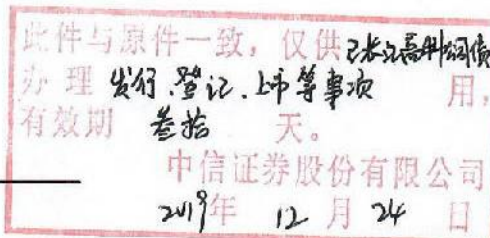 此件与原件一致，仅供
办理 发行、登记、上市等事项 用，
有效期 叁拾 天。
中信证券股份有限公司
2019年 12 月 24 日